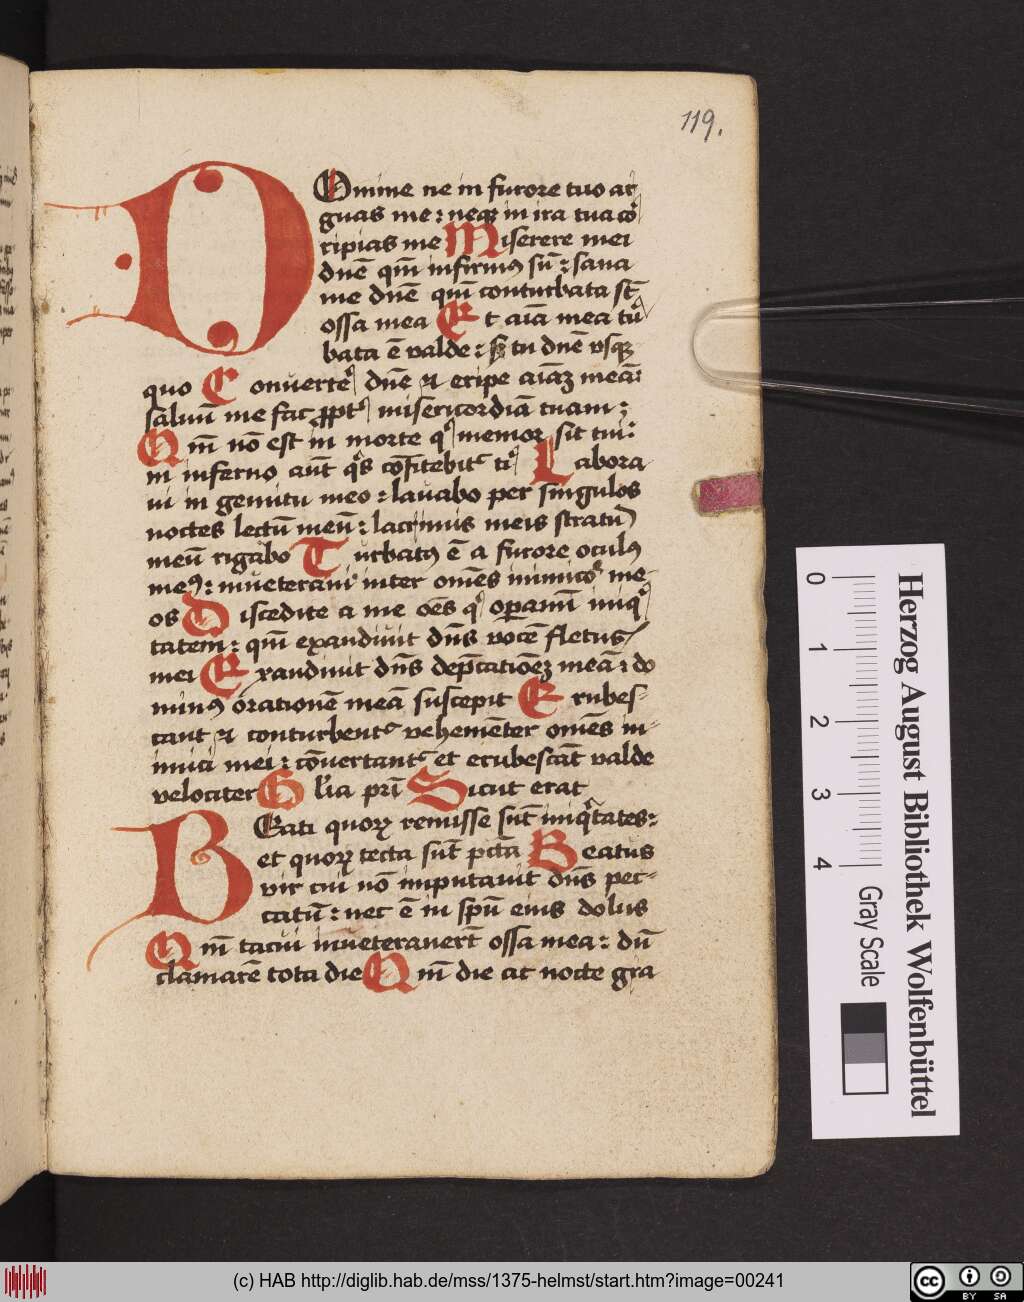 119.
Domine ne in furore tuo ar
guas me : neqꝫ in ira tua co͛
ripias me Miserere mei
dn̄e qm̄ infirmꝰ su̅ : sana
me dn̄e qm̄ conturbata su̅t
ossa mea Et aīa mea tur
bata ē valde : sꝫ tu dn̄e vsqꝫ
quo Conuerte͛ dn̄e ⁊ eripe aīaꝫ meā :
saluū me fac ꝓpt͛ misericordiā tuam :
Qm̄ nō est in morte q͛ memor sit tui :
in inferno aūt qͥs cōfitebit᷑ ti͛ Labora
ui in gemitu meo : lauabo per singulos
noctes lectū meū : lacrimis meis stratū
meū rigabo Turbatꝰ ē a furore oculꝰ
meꝰ : inueteraui inter om̄es inimico͛ me-
os Discedite a me oēs q͛ oꝑamī iniq͛
tatem : qm̄ exaudiuit dn̄s vocē fletus
mei Exaudiuit dn̄s dep̄catiōeꝫ meā : do
minꝰ orationē meā suscepit Erubes-
cant ⁊ conturbent᷑ vehemēter om̄es in-
imici mei : cōuertant᷑ et erubescāt valde
velociter Gl̄ia pr̄i Sicut erat
Beati quorꝝ remisse su̅t iniqͥtates :
et quorꝝ tecta su̅t pct̄a Beatus
vir cui nō imputauit dn̄s pec-
catū : nec ē in sp̄u eius dolus
Qm̄ tacui inueterauert̄ ossa mea : dū
clamarē tota die Qm̄ die ac nocte gra
Herzog August Bibliothek Wolfenbüttel
0 1 2 3 4
Gray Scale
(c) HAB http://diglib.hab.de/mss/1375-helmst/start.htm?image=00241
cc BY SA